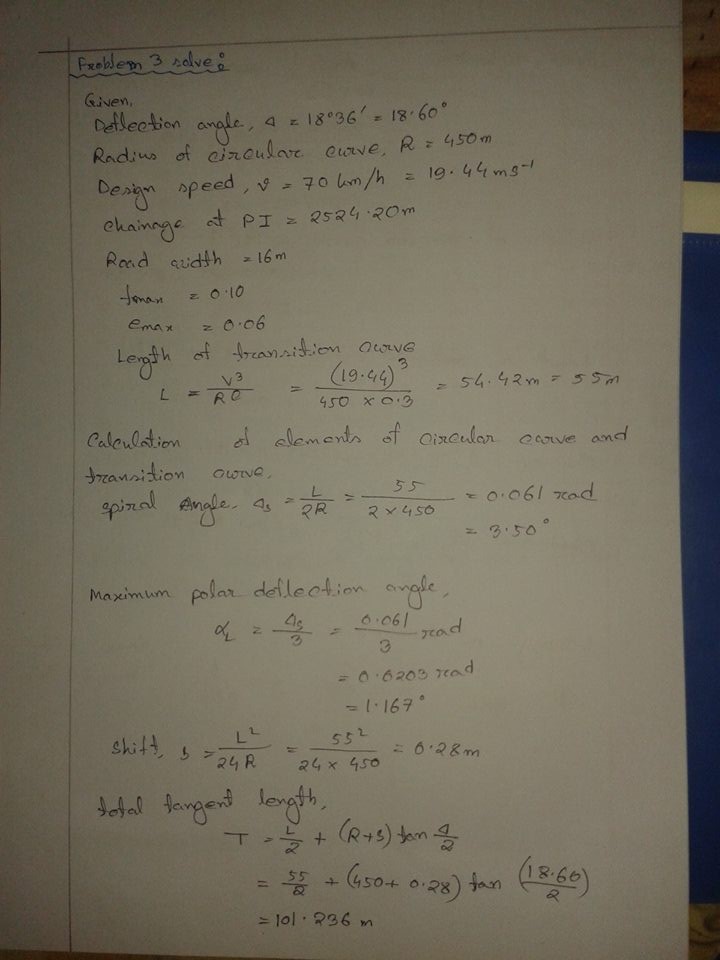 Problem 3 solve:
Given,
Deflection angle, Δ = 18°36′ = 18.60°
Radius of circular curve, R = 450m
Design speed, v = 70 km/h = 19.44 ms⁻¹
chainage at PI = 2524.20m
Road width = 16m
fmax = 0.10
emax = 0.06
Length of transition curve
L = V³/RC = (19.44)³/(450 × 0.3) = 54.42m = 55m
Calculation of elements of circular curve and
transition curve.
spiral Angle, Δs = L/2R = 55/(2 × 450) = 0.061 rad
= 3.50°
Maximum polar deflection angle,
αL = Δs/3 = 0.061/3 rad
= 0.0203 rad
= 1.167°
Shift, s = L²/24R = 55²/(24 × 450) = 0.28m
total tangent length,
T = L/2 + (R+s) tan Δ/2
= 55/2 + (450 + 0.28) tan (18.60/2)
= 101.236 m